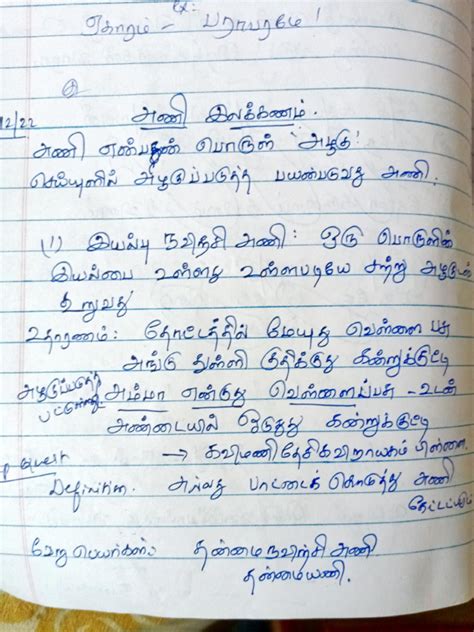 ஏகாரம் - பராபரமே!
12/22
அணி இலக்கணம்.
அணி என்பதன் பொருள் 'அழகு'
செய்யுளில் அழகுபடுத்த பயன்படுவது அணி.
(1) இயல்பு நவிற்சி அணி: ஒரு பொருளின்
இயல்பை உள்ளது உள்ளபடியே சற்று அழகுடன்
கூறுவது
உதாரணம்: தோட்டத்தில் மேயுது வெள்ளை பசு
அங்கு துள்ளி குதிக்குது கன்றுக்குட்டி
அழகுபடுத்த
அம்மா என்குது வெள்ளைப்பசு - உடன்
அண்டையில் ஓடுது கன்றுக்குட்டி
→ கவிமணி தேசிகவிநாயகம் பிள்ளை.
Definition. அல்லது பாட்டைக் கொடுத்து அணி
கேட்டப்படும்
வேறு பெயர்கள்: தன்மை நவிற்சி அணி
தன்மையணி.